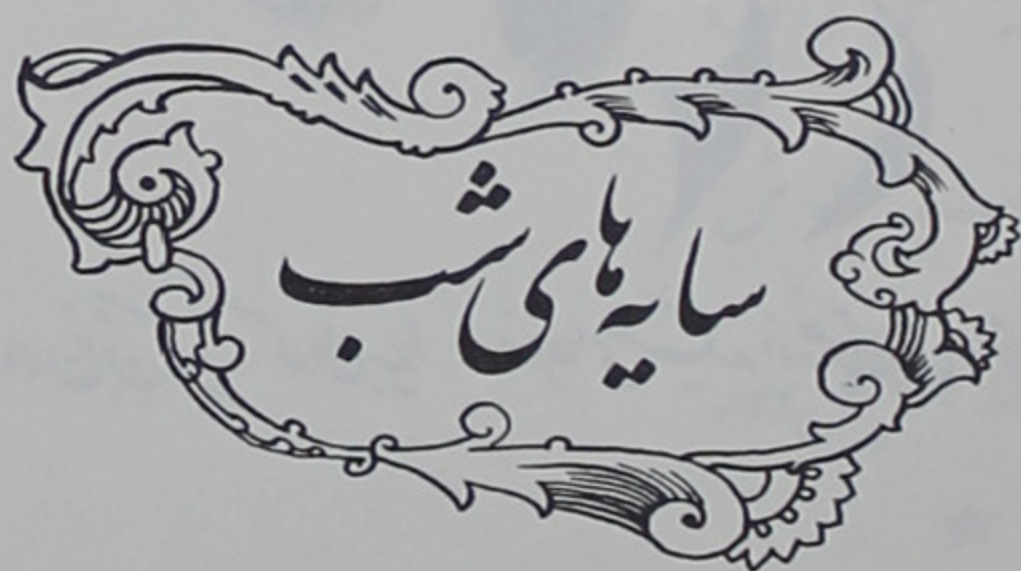 سایه های شب